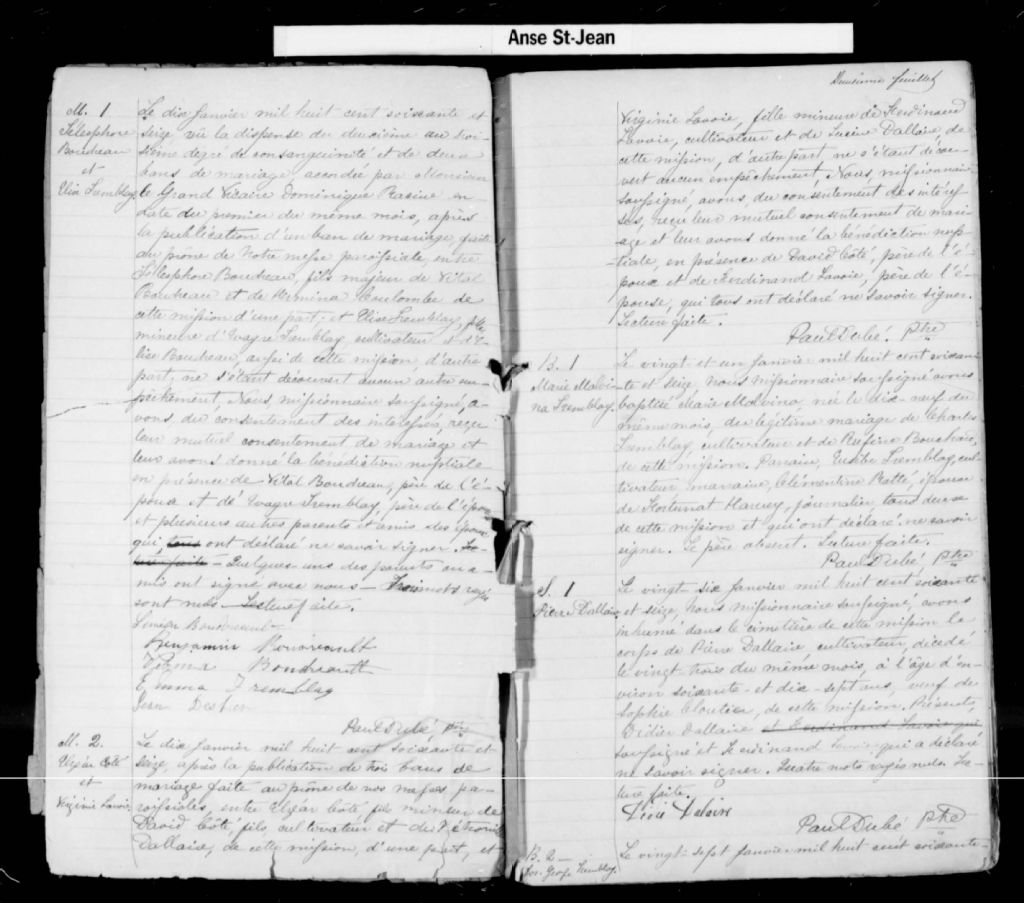 Anse St-Jean
M. 1
Télesphore
Boudreau
et
Elise Tremblay
Le dix Janvier mil huit cent soixante et
seize vû la dispense du deuxième au troi-
sième degré de consanguinité et de deux
bans de mariage accordée par Monsieur
le Grand Vicaire Dominique Racine en
date du premier du même mois, après
la publication d'un ban de mariage faite
au prône de Notre messe paroissiale, entre
Télesphore Boudreau, fils majeur de Vital
Boudreau et de Hermina Coulombe de
cette mission d'une part; et Elise Tremblay, fille
mineure d'Evagre Tremblay, cultivateur et d'E-
lise Boudreau, aussi de cette mission, d'autre
part; ne s'étant découvert aucun autre em-
pêchement, Nous, missionnaire soussigné, a-
vons, du consentement des intéressés, reçu
leur mutuel consentement de mariage et
leur avons donné la bénédiction nuptiale
en présence de Vital Boudreau, père de l'é-
poux et de Evagre Tremblay, père de l'épouse
et plusieurs autres parents et amis des époux
qui tous ont déclaré ne savoir signer. Lec-
ture faite - Quelques-uns des parents ou a-
mis ont signé avec nous - Trois mots rayés
sont nuls - Lecture faite.
Boudreault
Benjamin Boudreault
Boudreault
Emma Tremblay
Jean
Paul Dubé Ptre
M. 2.
Elzéar Coté
et
Virginie Lavoie
Le dix Janvier mil huit cent soixante et
seize, après la publication de trois bans de
mariage faite au prône de nos messes pa-
roissiales, entre Elzéar Coté, fils mineur de
David Côté, fils, cultivateur et de
Dallaire, de cette mission, d'une part, et
Deuxième feuillet
Virginie Lavoie, fille mineure de Ferdinand
Lavoie, cultivateur et de Lucive Dallaire de
cette mission, d'autre part, ne s'étant décou-
vert aucun empêchement, Nous, missionnaire
soussigné, avons, du consentement des intéres-
sés, reçu leur mutuel consentement de mari-
age et leur avons donné la bénédiction nup-
tiale, en présence de David Côté, père de l'é-
poux et de Ferdinand Lavoie, père de l'é-
pouse, qui tous ont déclaré ne savoir signer.
Lecture faite.
Paul Dubé. Ptre
B. 1
Marie Malvi-
na Tremblay.
Le vingt et un Janvier mil huit cent soixan-
te et seize, Nous missionnaire soussigné avons
baptisé Marie Malvina, née le dix-neuf du
même mois, du légitime mariage de Charles
Tremblay, cultivateur et de Rufine Bouchard,
de cette mission. Parrain, Eusèbe Tremblay, cul-
tivateur, marraine, Clémentine Ratté, épouse
de Fortunat Harvey, journalier tous deux
de cette mission et qui ont déclaré ne savoir
signer. Le père absent. Lecture faite.
Paul Dubé Ptre
S. 1
Pierre Dallaire
Le vingt-six Janvier mil huit cent soixante
et seize, Nous missionnaire soussigné, avons
inhumé dans le cimetière de cette mission le
corps de Pierre Dallaire, cultivateur, décédé
le vingt-trois du même mois, à l'âge d'en-
viron soixante-et-dix-sept ans, veuf de
Sophie Cloutier, de cette mission. Présents,
Didier Dallaire et Ferdinand Lavoie qui
soussigné et Ferdinand Lavoie qui a déclaré
ne savoir signer. Quatre mots rayés nuls. Lec-
ture faite.
Paul Dubé Ptre
B. 2 -
Jos. George Tremblay.
Le vingt-sept janvier mil huit cent soixante-